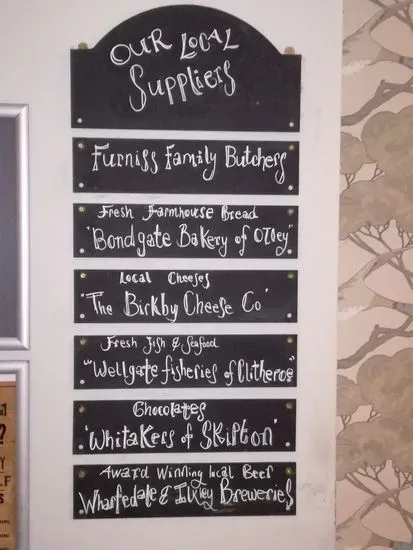 OUR LOCAL
SUPPLIERS
Furniss Family Butchers
Fresh Farmhouse Bread
'Bondgate Bakery of Otley'
Local Cheeses
'The Birkby Cheese Co'
Fresh Fish & Seafood
"Wellgate fisheries of Clitheroe"
Chocolates
'Whitakers of Skipton'
Award Winning local Beer
Wharfedale & Ilkley Breweries